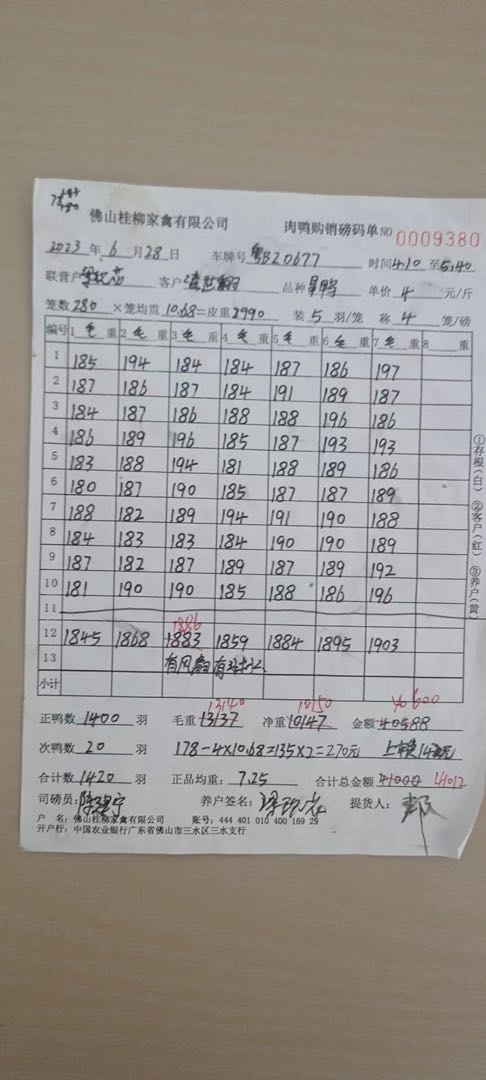 佛山桂柳家禽有限公司 肉鸭购销磅码单 NO 0009380
2023 年 6 月 28 日 车牌号 粤B20677 时间 4:10 至 5:40
联营户 客户 品种 单价 4 元/斤
笼数 280 ×笼均贯 10.68 =皮重 2990 装 5 羽/笼 称 4 笼/磅
编号 1 毛 重 2 毛 重 3 毛 重 4 毛 重 5 毛 重 6 毛 重 7 毛 重 8 重
1 185 194 184 184 187 186 197
2 187 186 187 184 191 189 187
3 184 187 186 188 188 196 186
4 186 189 196 185 187 193 193
5 183 188 194 181 188 189 186
6 180 187 190 185 187 187 189
7 188 182 189 194 191 190 188
8 184 183 183 184 190 190 189
9 187 182 187 189 187 189 192
10 181 190 190 185 188 186 196
11
1886
12 1845 1868 1883 1859 1884 1895 1903
13 有风扇有
小计
13140 10150 40600
正鸭数 1400 羽 毛重 13137 净重 10147 金额 40588
次鸭数 20 羽 178-4×10.68=135×2=270元
合计数 1420 羽 正品均重: 7.25 合计总金额 41000 41012
司磅员: 养户签名: 提货人:
户 名: 佛山桂柳家禽有限公司 账号: 444 401 010 400 169 29
开户行: 中国农业银行广东省佛山市三水区三水支行
①存根(白) ②客户(红) ③养户(黄)